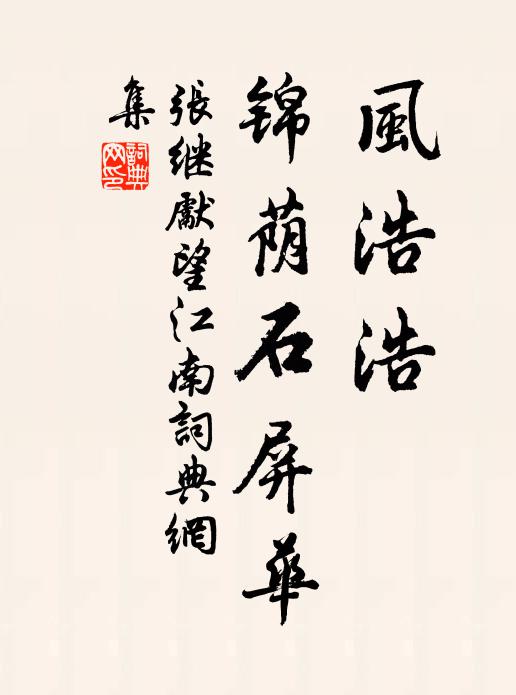 風浩浩
锦荫石屏華
張继厭望江南詞典網
集
詞典
网印